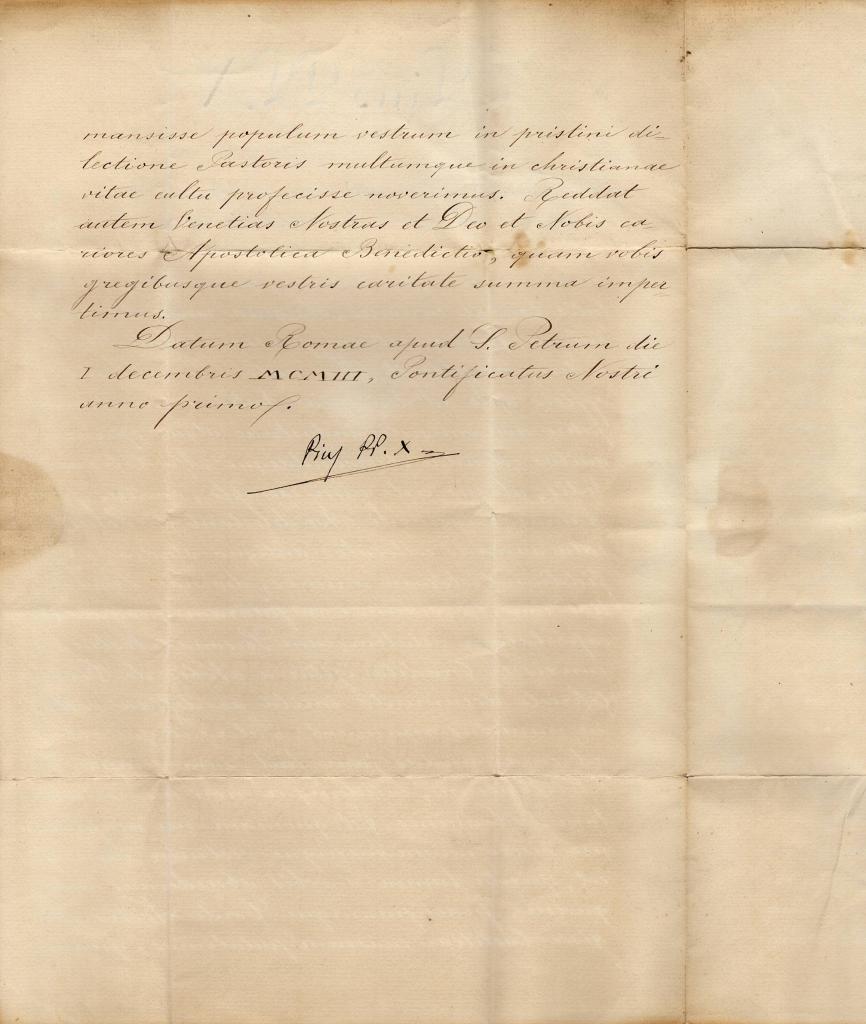 mansisse populum vestrum in pristini di-
lectione Pastoris multumque in christianae
vitae cultu profecisse noverimus. Reddat
autem Venetias Nostras et Deo et Nobis ca-
riores Apostolica Benedictio, quam vobis
gregibusque vestris caritate summa imper-
timus.
Datum Romae apud S. Petrum die
I decembris MCMIII, Pontificatus Nostri
anno primo.
Pius PP. X